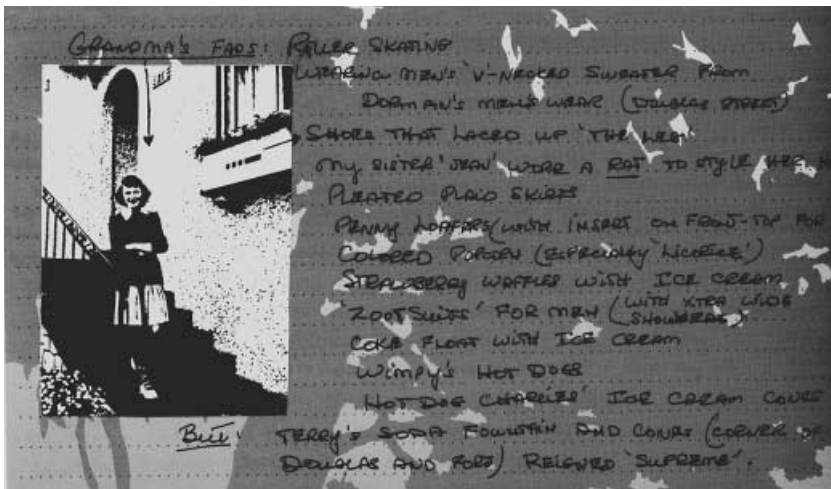 GRANDMA'S FADS: ROLLER SKATING
WEARING MEN'S 'V'-NECKED SWEATER FROM
DORMAN'S MEN'S WEAR (DOUGLAS STREET)
SHOES THAT LACED UP 'THE LEG'
MY SISTER 'JEAN' WORE A RAT TO STYLE HER
PLEATED PLAID SKIRTS
PENNY LOAFERS (WITH INSERT ON FRONT-TOP FOR
COLORED POPCORN (ESPECIALLY 'LICORICE')
STRAWBERRY WAFFLES WITH ICE CREAM
'ZOOT SUITS' FOR MEN (WITH XTRA WIDE
SHOULDERS)
COKE FLOAT WITH ICE CREAM
WIMPY'S HOT DOGS
HOT DOG CHARLIES' ICE CREAM CONES
BUT: TERRY'S SODA FOUNTAIN AND CONES (CORNER OF
DOUGLAS AND FORT) REIGNED 'SUPREME'.